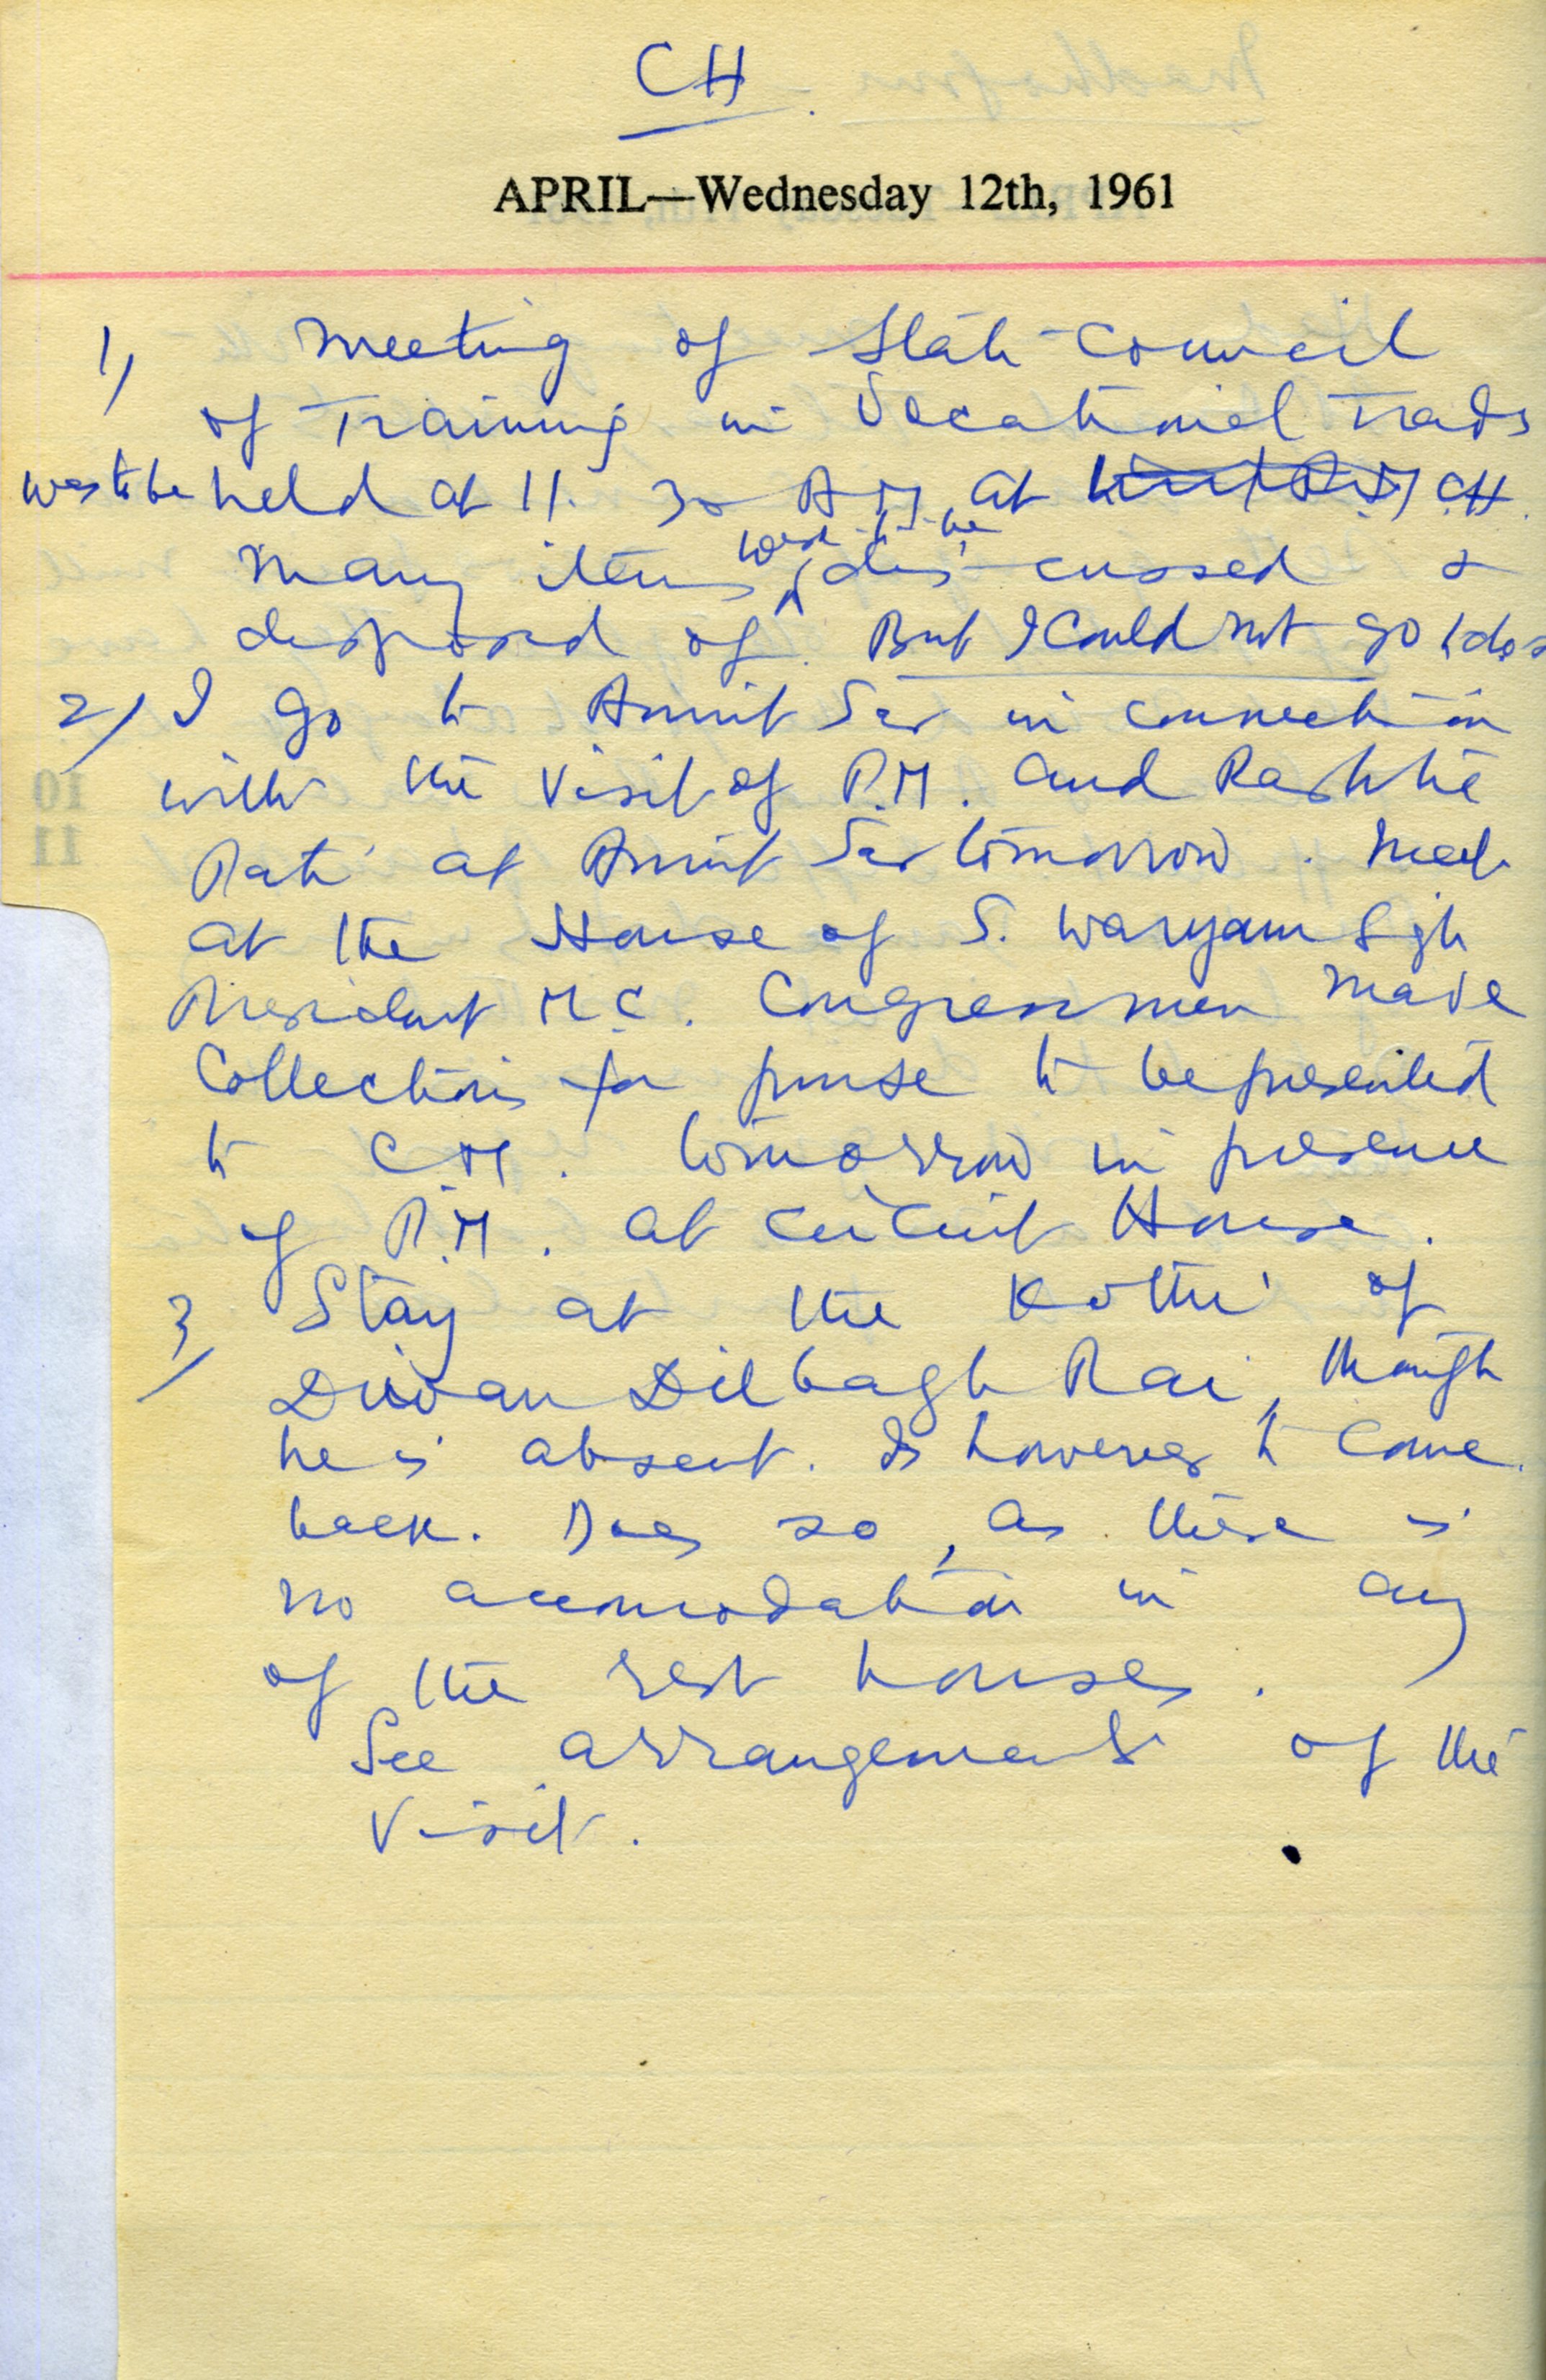 CH
APRIL—Wednesday 12th, 1961
1) Meeting of State Council
of Training in Vocational Trades
was to be held at 11.30 A.M. at CH.
Many items were to be discussed &
disposed of. But I could not go to
2) I go to Amrit Sar in connection
with the visit of P.M. and Rashtra
Pati at Amrit Sar tomorrow. Meet
at the House of S. Waryam Singh
President M.C. Congressmen made
Collections for purse to be presented
to C.M. tomorrow in presence
of P.M. at Circuit House.
3/ Stay at the Kothi of
Diwan Dilbagh Rai, though
he is absent. Is however to come
back. Does so, as there is
no accomodation in any
of the rest houses.
See arrangements of the
Visit.